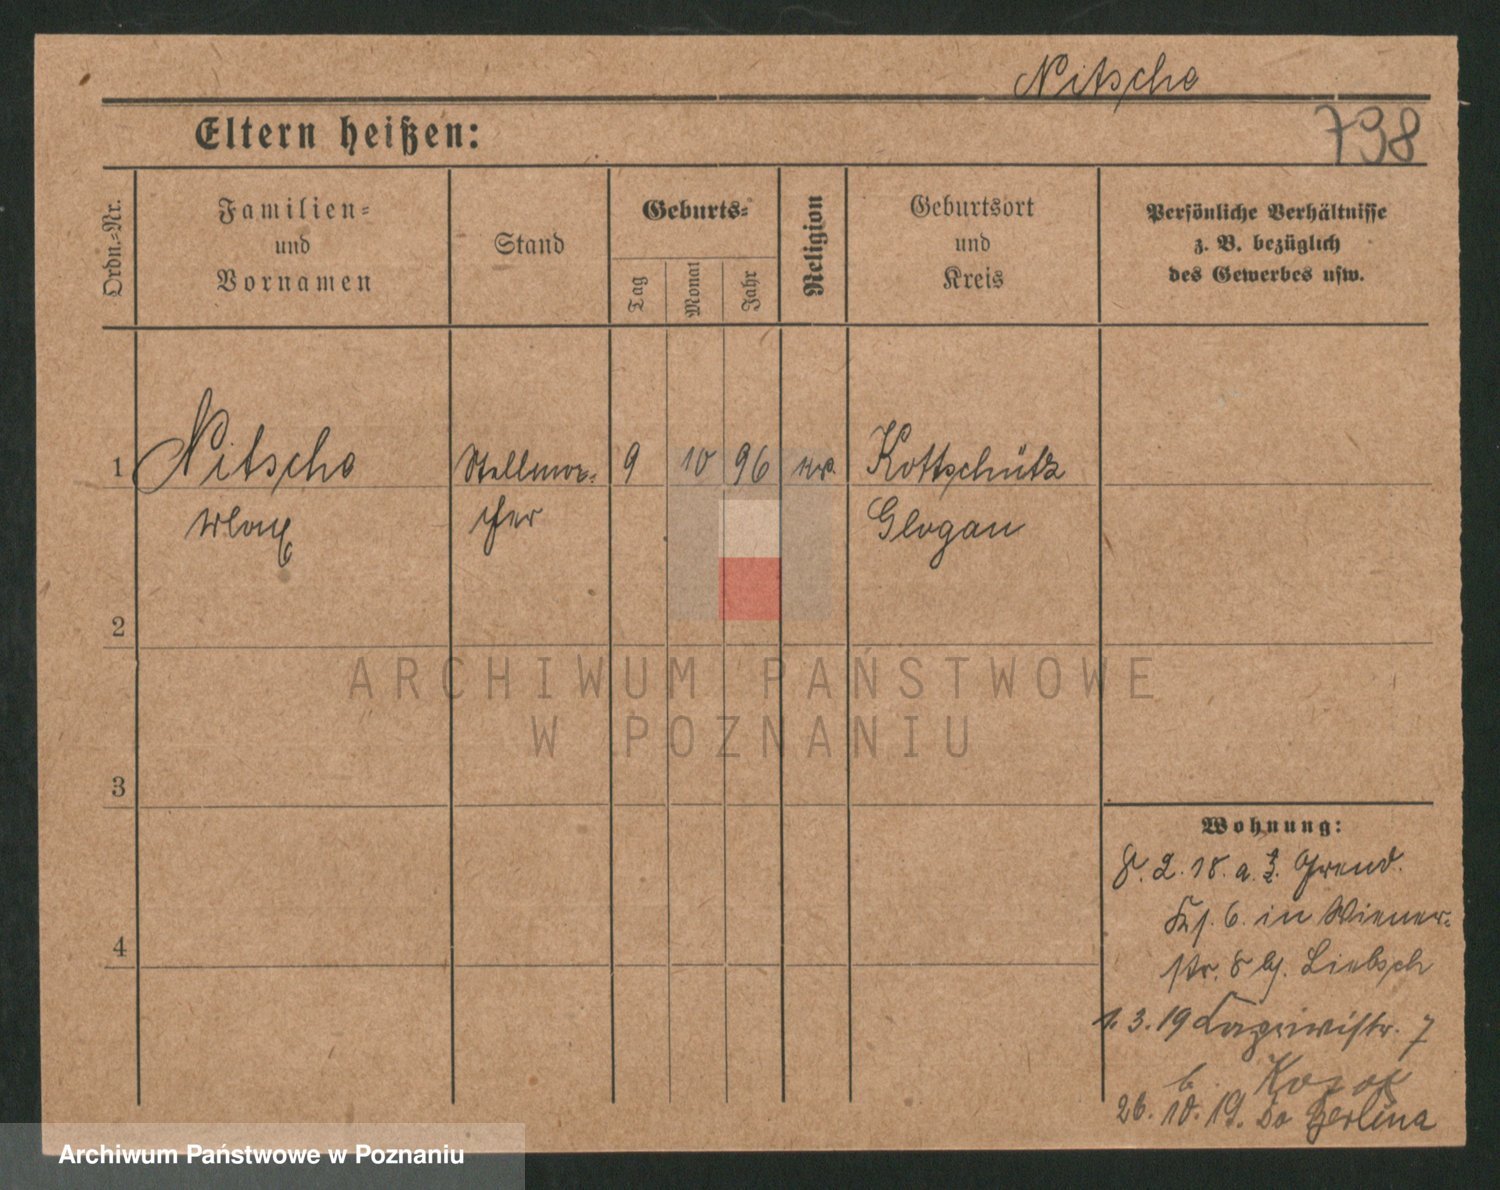 Nitsche
798
Eltern heißen:
Ordn.=Nr.
Familien=
und
Vornamen
Stand
Geburts=
Tag
Monat
Jahr
Religion
Geburtsort
und
Kreis
Persönliche Verhältnisse
z. B. bezüglich
des Gewerbes usw.
1 Nitsche Stellma= 9 10 96 ev. Kottschütz
Max cher Glogau
2
3
4
ARCHIWUM PAŃSTWOWE
W POZNANIU
Wohnung:
8. 2. 18. a. 3. Grend.
6. in Wiener=
str. 8 bj. Liebsch
1. 3. 19 Caprivistr. 7
b.
26. 10. 19. do Berlina
Archiwum Państwowe w Poznaniu